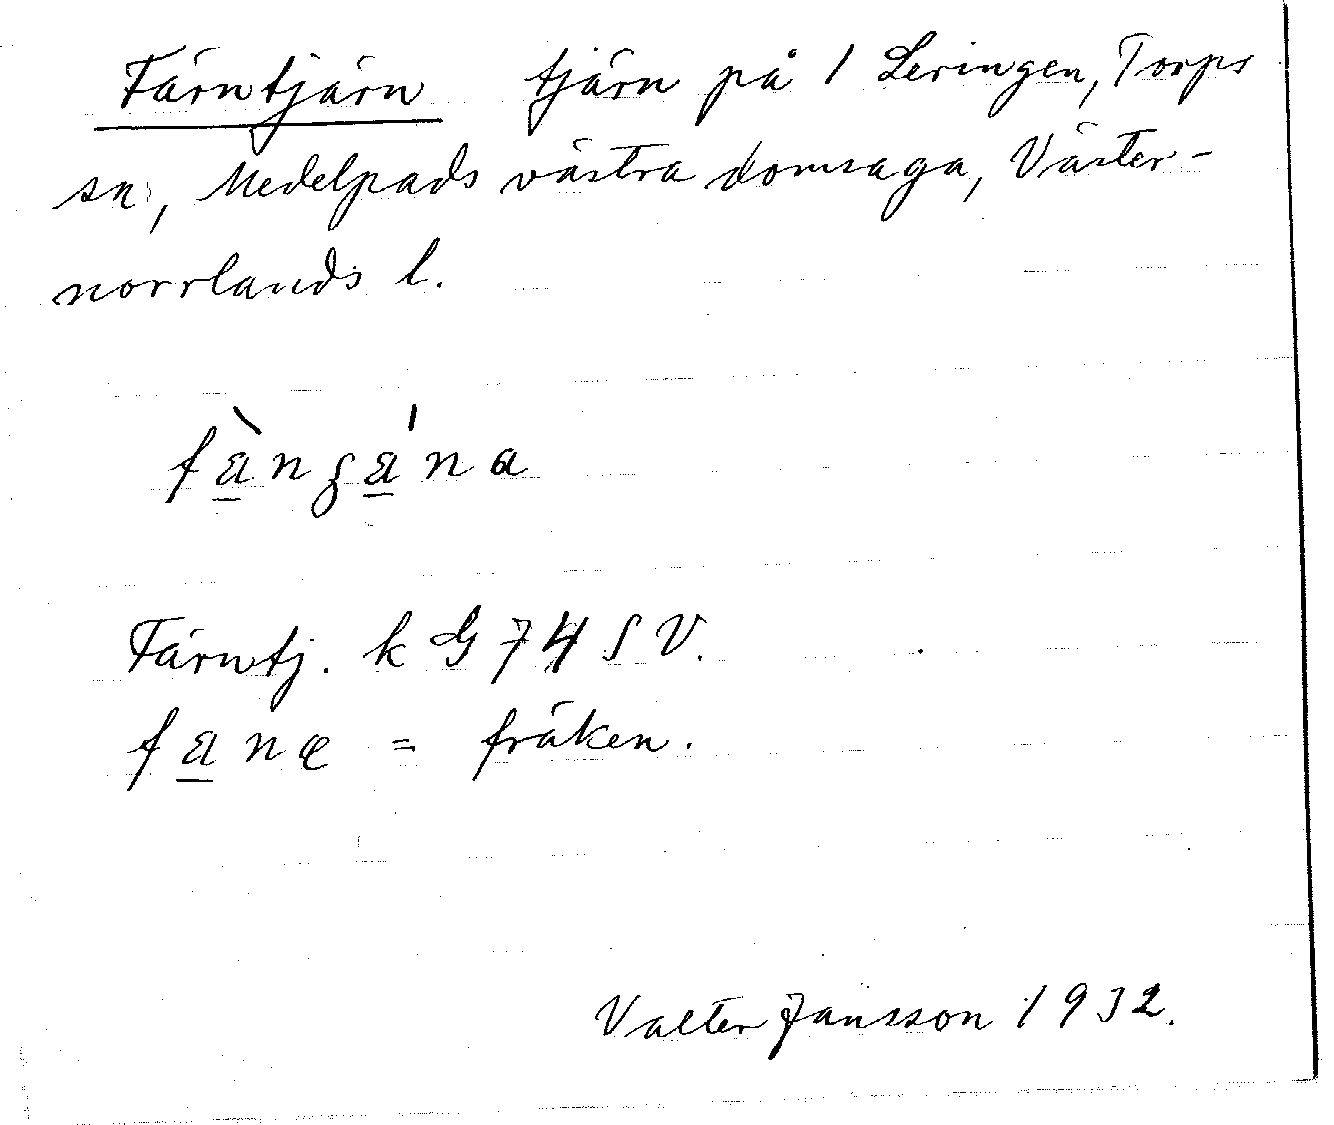 Färntjärn tjärn på 1 Leringen, Torps
sn, Medelpads västra domsaga, Väster-
norrlands l.
fà̱nʂá̱na
Färntj. k G 74 S V.
fa̱nę = fräken.
Valter Jansson 1932.